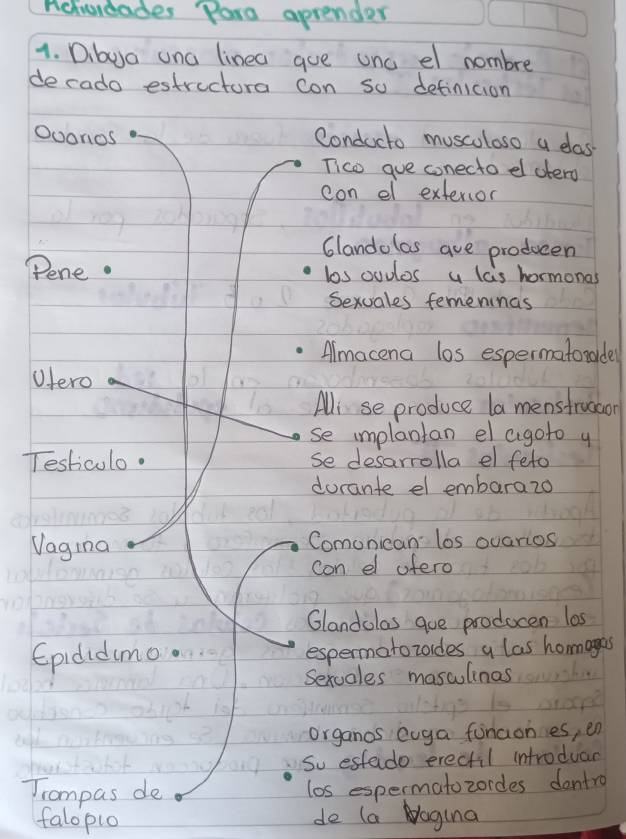 Actividades Para aprender
1. Dibuja una linea que una el nombre
de cada estructura con su definicion
Ovarios
Pene
Utero
Testiculo
Vagina
Epididimo
Trompas de
falopio
Conducto musculoso y elas
Tico que conecta el utero
con el exterior
Glandulas que producen
los ovulos y las hormonas
Sexuales femeninas
Almacena los espermatozoides
Alli se produce la menstruacion
se implantan el cigoto y
se desarrolla el feto
durante el embarazo
Comunican los ovarios
con el utero
Glandulas que producen los
espermatozoides y las
sexuales masculinas
organos cuya funcion es, en
su estado erectil introducir
los espermatozordes dentro
de la Vagina